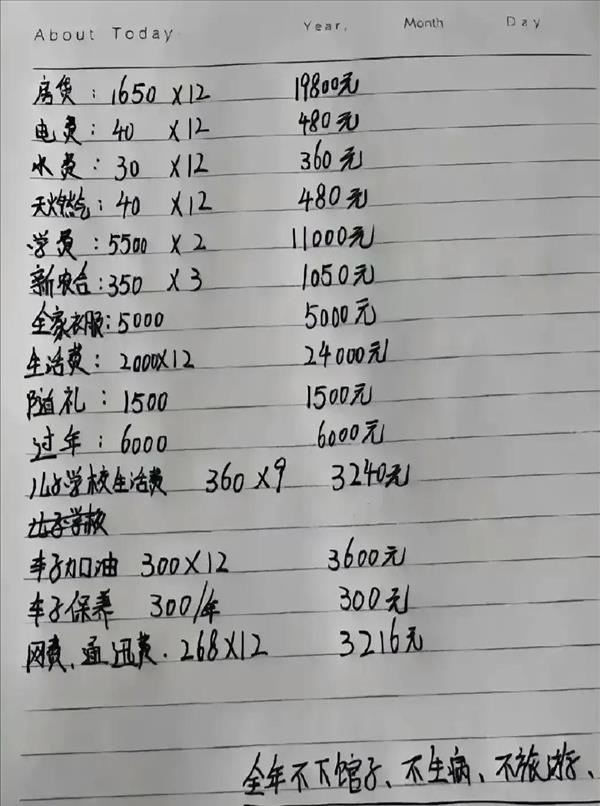 About Today Year, Month Day
房贷：1650 X12 19800元
电费：40 X12 480元
水费：30 X12 360元
天燃气：40 X12 480元
学费：5500 X 2 11000元
新农合：350 X 3 1050元
全家衣服：5000 5000元
生活费：2000X12 24000元
随礼：1500 1500元
过年：6000 6000元
儿子学校生活费 360 X9 3240元
儿子学校
车子加油 300X12 3600元
车子保养 300/年 300元
网费、通迅费．268X12 3216元
全年不下馆子、不生病、不旅游、